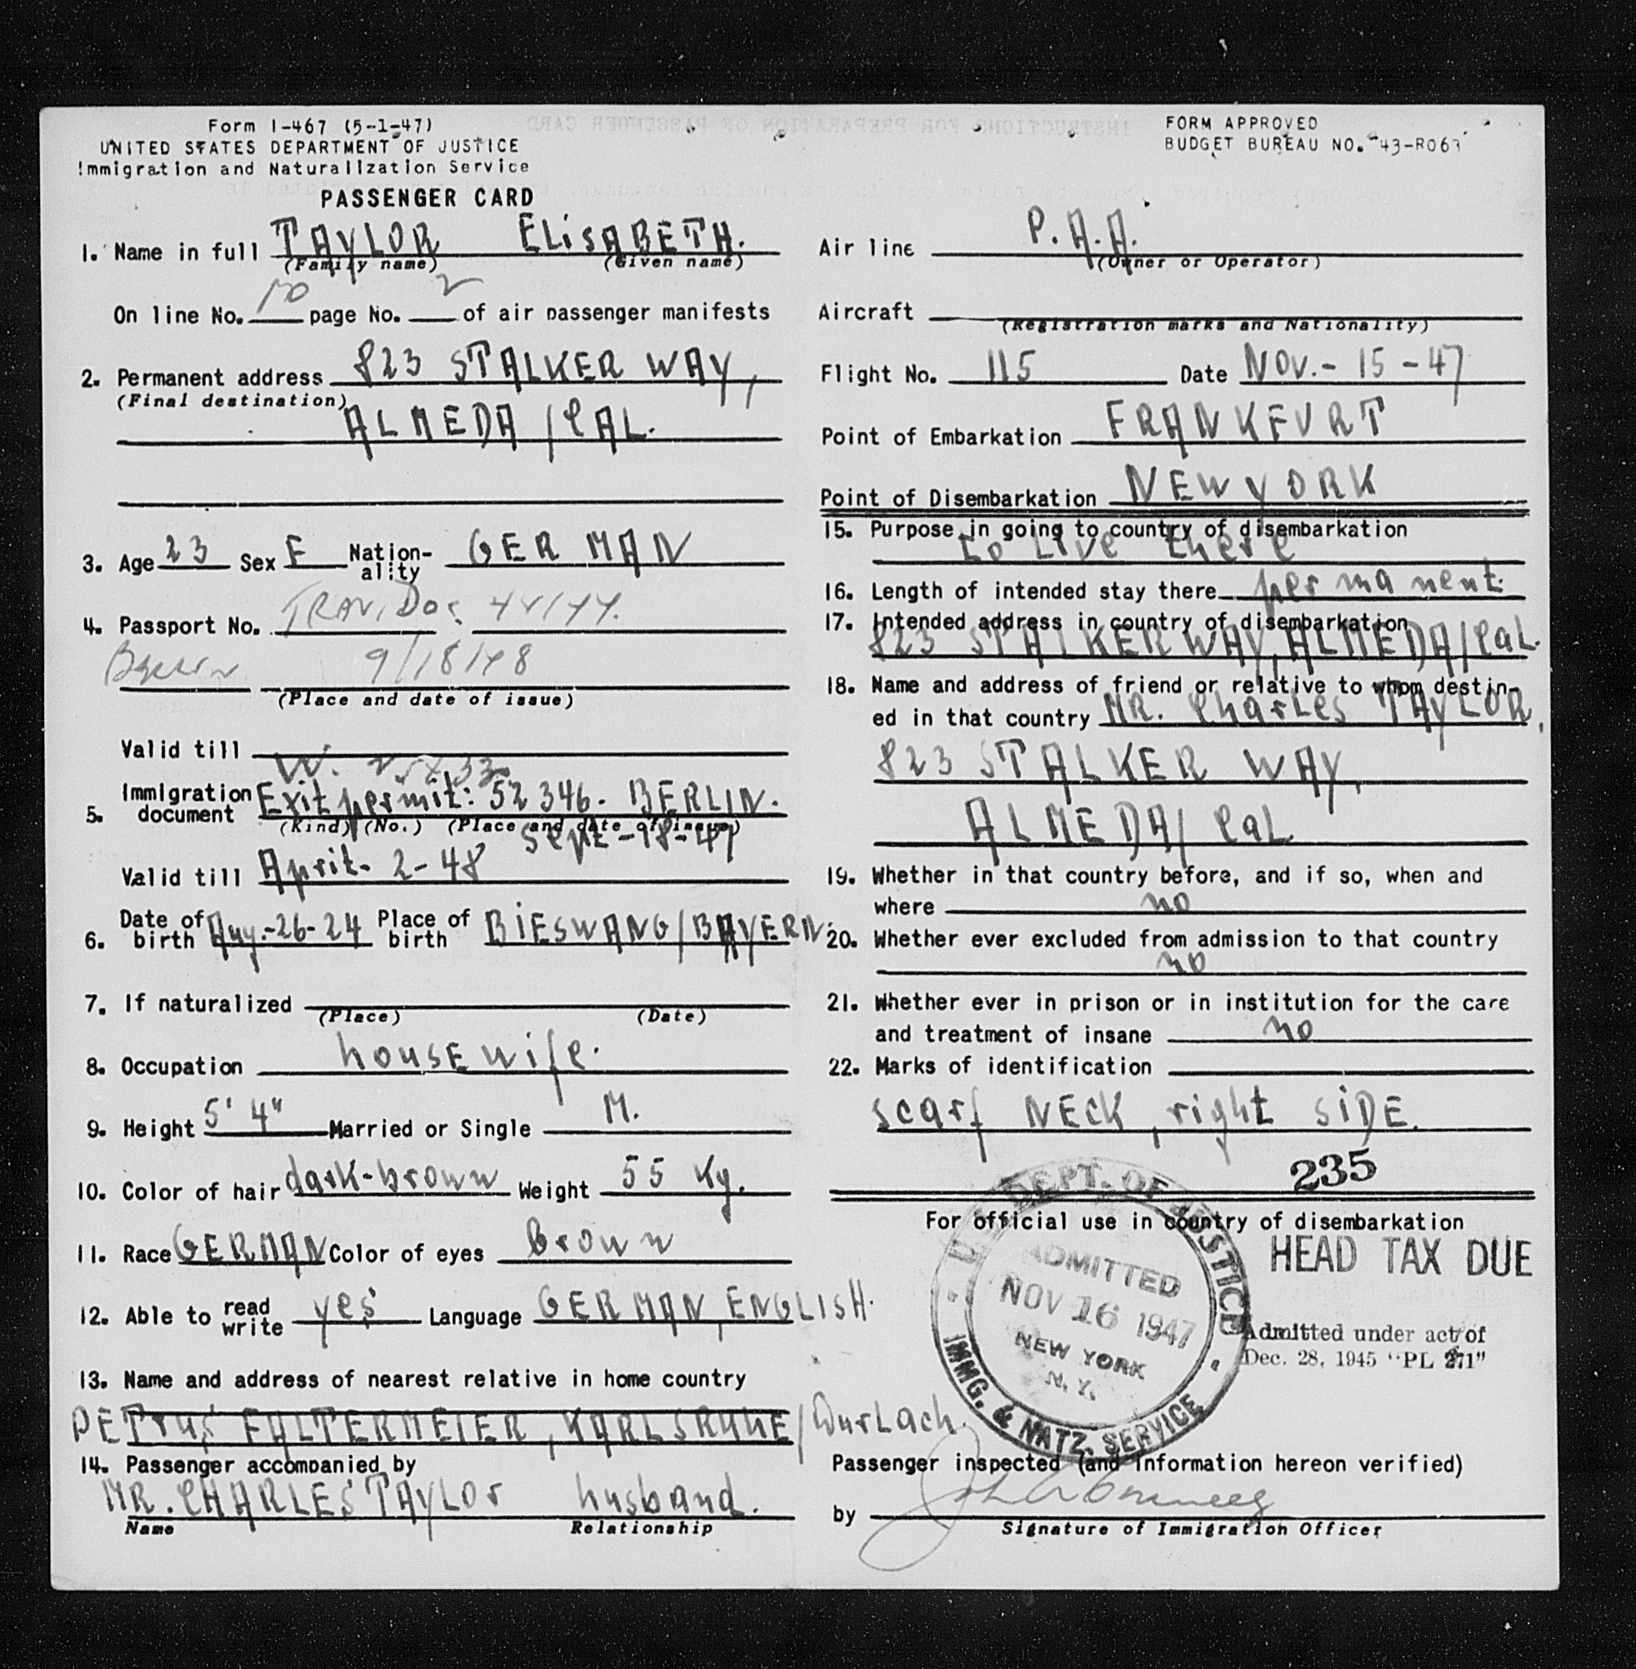 Form I-467 (5-1-47)
UNITED STATES DEPARTMENT OF JUSTICE
Immigration and Naturalization Service
PASSENGER CARD
1. Name in full TAYLOR ELiSABETH.
(Family name) (Given name)
On line No. 10 page No. 2 of air passenger manifests
2. Permanent address 823 STALKER WAY,
(Final destination)
ALMEDA / CAL.
3. Age 23 Sex F Nation-ality GERMAN
4. Passport No. TRAV. Doc.
9/18/48
(Place and date of issue)
Valid till
5. Immigration document Exit permit: 52 346. BERLIN.
(Kind) (No.) (Place and date of issue)
Sept-18-47
Valid till April. 2-48
6. Date of birth Aug.-26-24 Place of birth BiESWANG/BAYERN.
7. If naturalized
(Place) (Date)
8. Occupation housEwife.
9. Height 5' 4" Married or Single M.
10. Color of hair dark-brown Weight 55 Kg.
11. Race GERMAN Color of eyes brown
12. Able to read write yes Language GERMAN, ENGLISH.
13. Name and address of nearest relative in home country
PETrus FALTERMEIER, KARLSRUHE/DurLach.
14. Passenger accompanied by
MR. CHARLES TAYLOr husband.
Name Relationship
FORM APPROVED
BUDGET BUREAU NO. 43-R063
Air line P.A.A.
(Owner or Operator)
Aircraft
(Registration marks and Nationality)
Flight No. 115 Date NOV.- 15 -47
Point of Embarkation FRANKFURT
Point of Disembarkation NEW YORK
15. Purpose in going to country of disembarkation
to Live there
16. Length of intended stay there permanent.
17. Intended address in country of disembarkation
823 STALKER WAY, ALMEDA/CaL.
18. Name and address of friend or relative to whom destin-
ed in that country MR. CharLes TAYLOR,
823 STALKER WAY,
ALMEDA/ CaL
19. Whether in that country before, and if so, when and
where no
20. Whether ever excluded from admission to that country
no
21. Whether ever in prison or in institution for the care
and treatment of insane no
22. Marks of identification
scarf NECK, right SiDE.
235
For official use in country of disembarkation
HEAD TAX DUE
U.S. DEPT. OF JUSTICE
ADMITTED
NOV 16 1947
NEW YORK
N. Y.
IMMG. & NATZ. SERVICE
Admitted under act of
Dec. 28, 1945 "PL 271"
Passenger inspected (and information hereon verified)
by
Signature of Immigration Officer